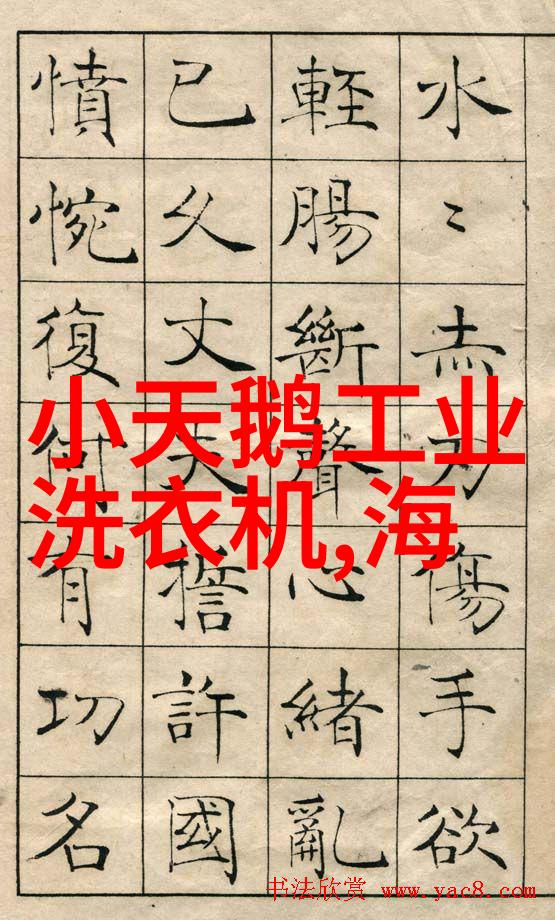 水〻赤刃傷手欲
輕腸斷聲心緒亂
已久丈夫誓許國
憤惋復何有功名
小天鹅工业
洗衣机,海
书法欣赏 www.yac8.com